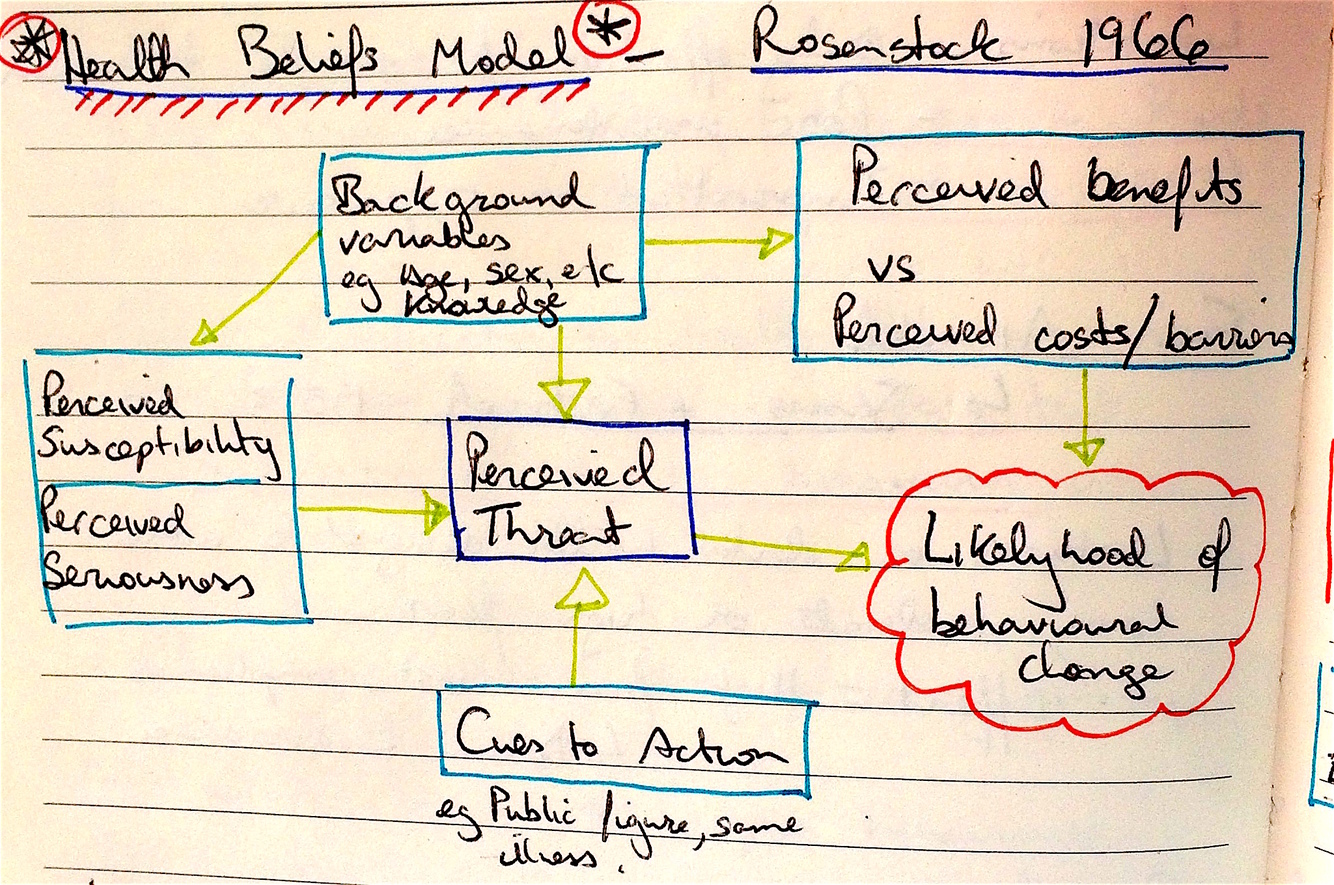 Health Beliefs Model - Rosenstock 1966
Background
variables
eg Age, sex, etc
Knowledge
Perceived benefits
vs
Perceived costs/barriers
Perceived
Susceptibility
Perceived
Seriousness
Perceived
Threat
Likelyhood of
behavioural
change
Cues to Action
eg Public figure, same
illness.